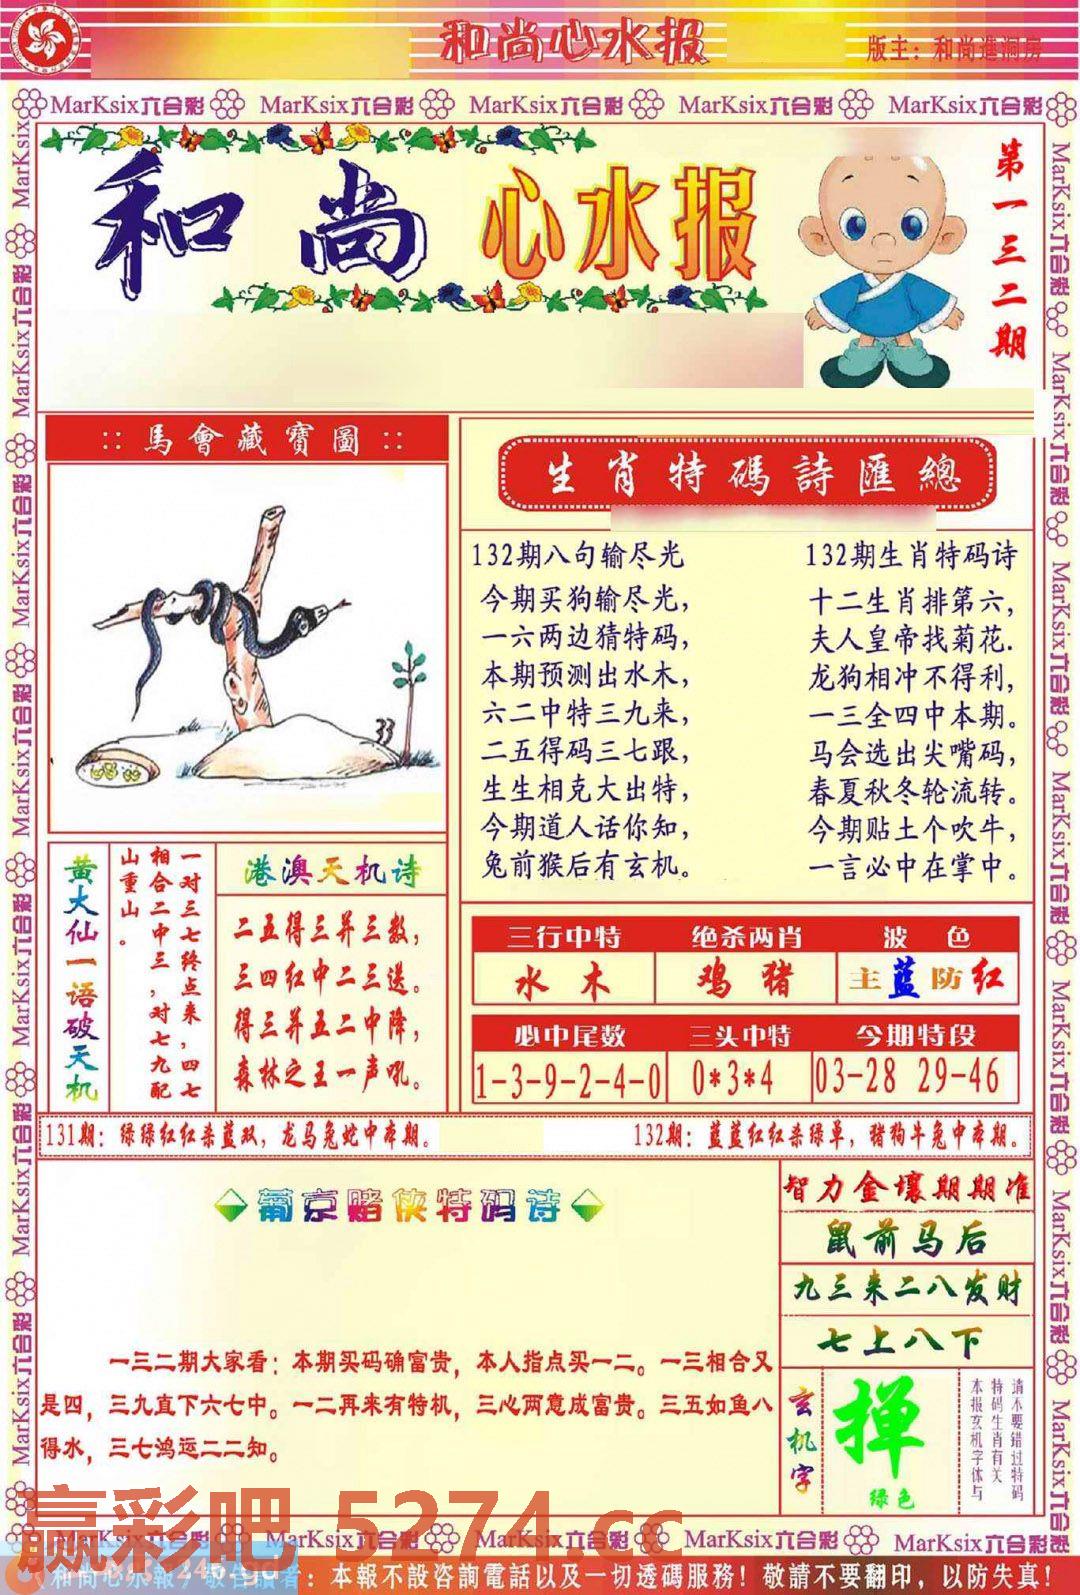 和尚心水报
版主：和尚進洞房
MarKsix六合彩 MarKsix六合彩 MarKsix六合彩 MarKsix六合彩 MarKsix六合彩
和尚心水报
第一三二期
::馬會藏寶圖::
33
生肖特碼詩匯總
132期八句输尽光
今期买狗输尽光，
一六两边猜特码，
本期预测出水木，
六二中特三九来，
二五得码三七跟，
生生相克大出特，
今期道人话你知，
兔前猴后有玄机。
132期生肖特码诗
十二生肖排第六，
夫人皇帝找菊花.
龙狗相冲不得利，
一三全四中本期。
马会选出尖嘴码，
春夏秋冬轮流转。
今期贴土个吹牛，
一言必中在掌中。
黄大仙一语破天机
一对三七终点来，四七
相合二中三，对七九配
山重山。
港澳天机诗
二五得三并三数，
三四红中二三送。
得三并五二中降，
森林之王一声吼。
三行中特 绝杀两肖 波色
水木 鸡猪 主蓝防红
必中尾数 三头中特 今期特段
1-3-9-2-4-0 0*3*4 03-28 29-46
131期：绿绿红红杀蓝双，龙马兔蛇中本期。
132期：蓝蓝红红杀绿单，猪狗牛兔中本期。
葡京赌侠特码诗
一三二期大家看：本期买码确富贵，本人指点买一二。一三相合又
是四，三九直下六七中。一二再来有特机，三心两意成富贵。三五如鱼八
得水，三七鸿运二二知。
智力金壤期期准
鼠前马后
九三来二八发财
七上八下
玄机字
掸
绿色
请不要错过特码
特码生肖有关
本报玄机字体与
赢彩吧 5274.cc
MarKsix六合彩 MarKsix六合彩 MarKsix六合彩 MarKsix六合彩
：本報不設咨詢電話以及一切透碼服務！敬請不要翻印，以防失真！